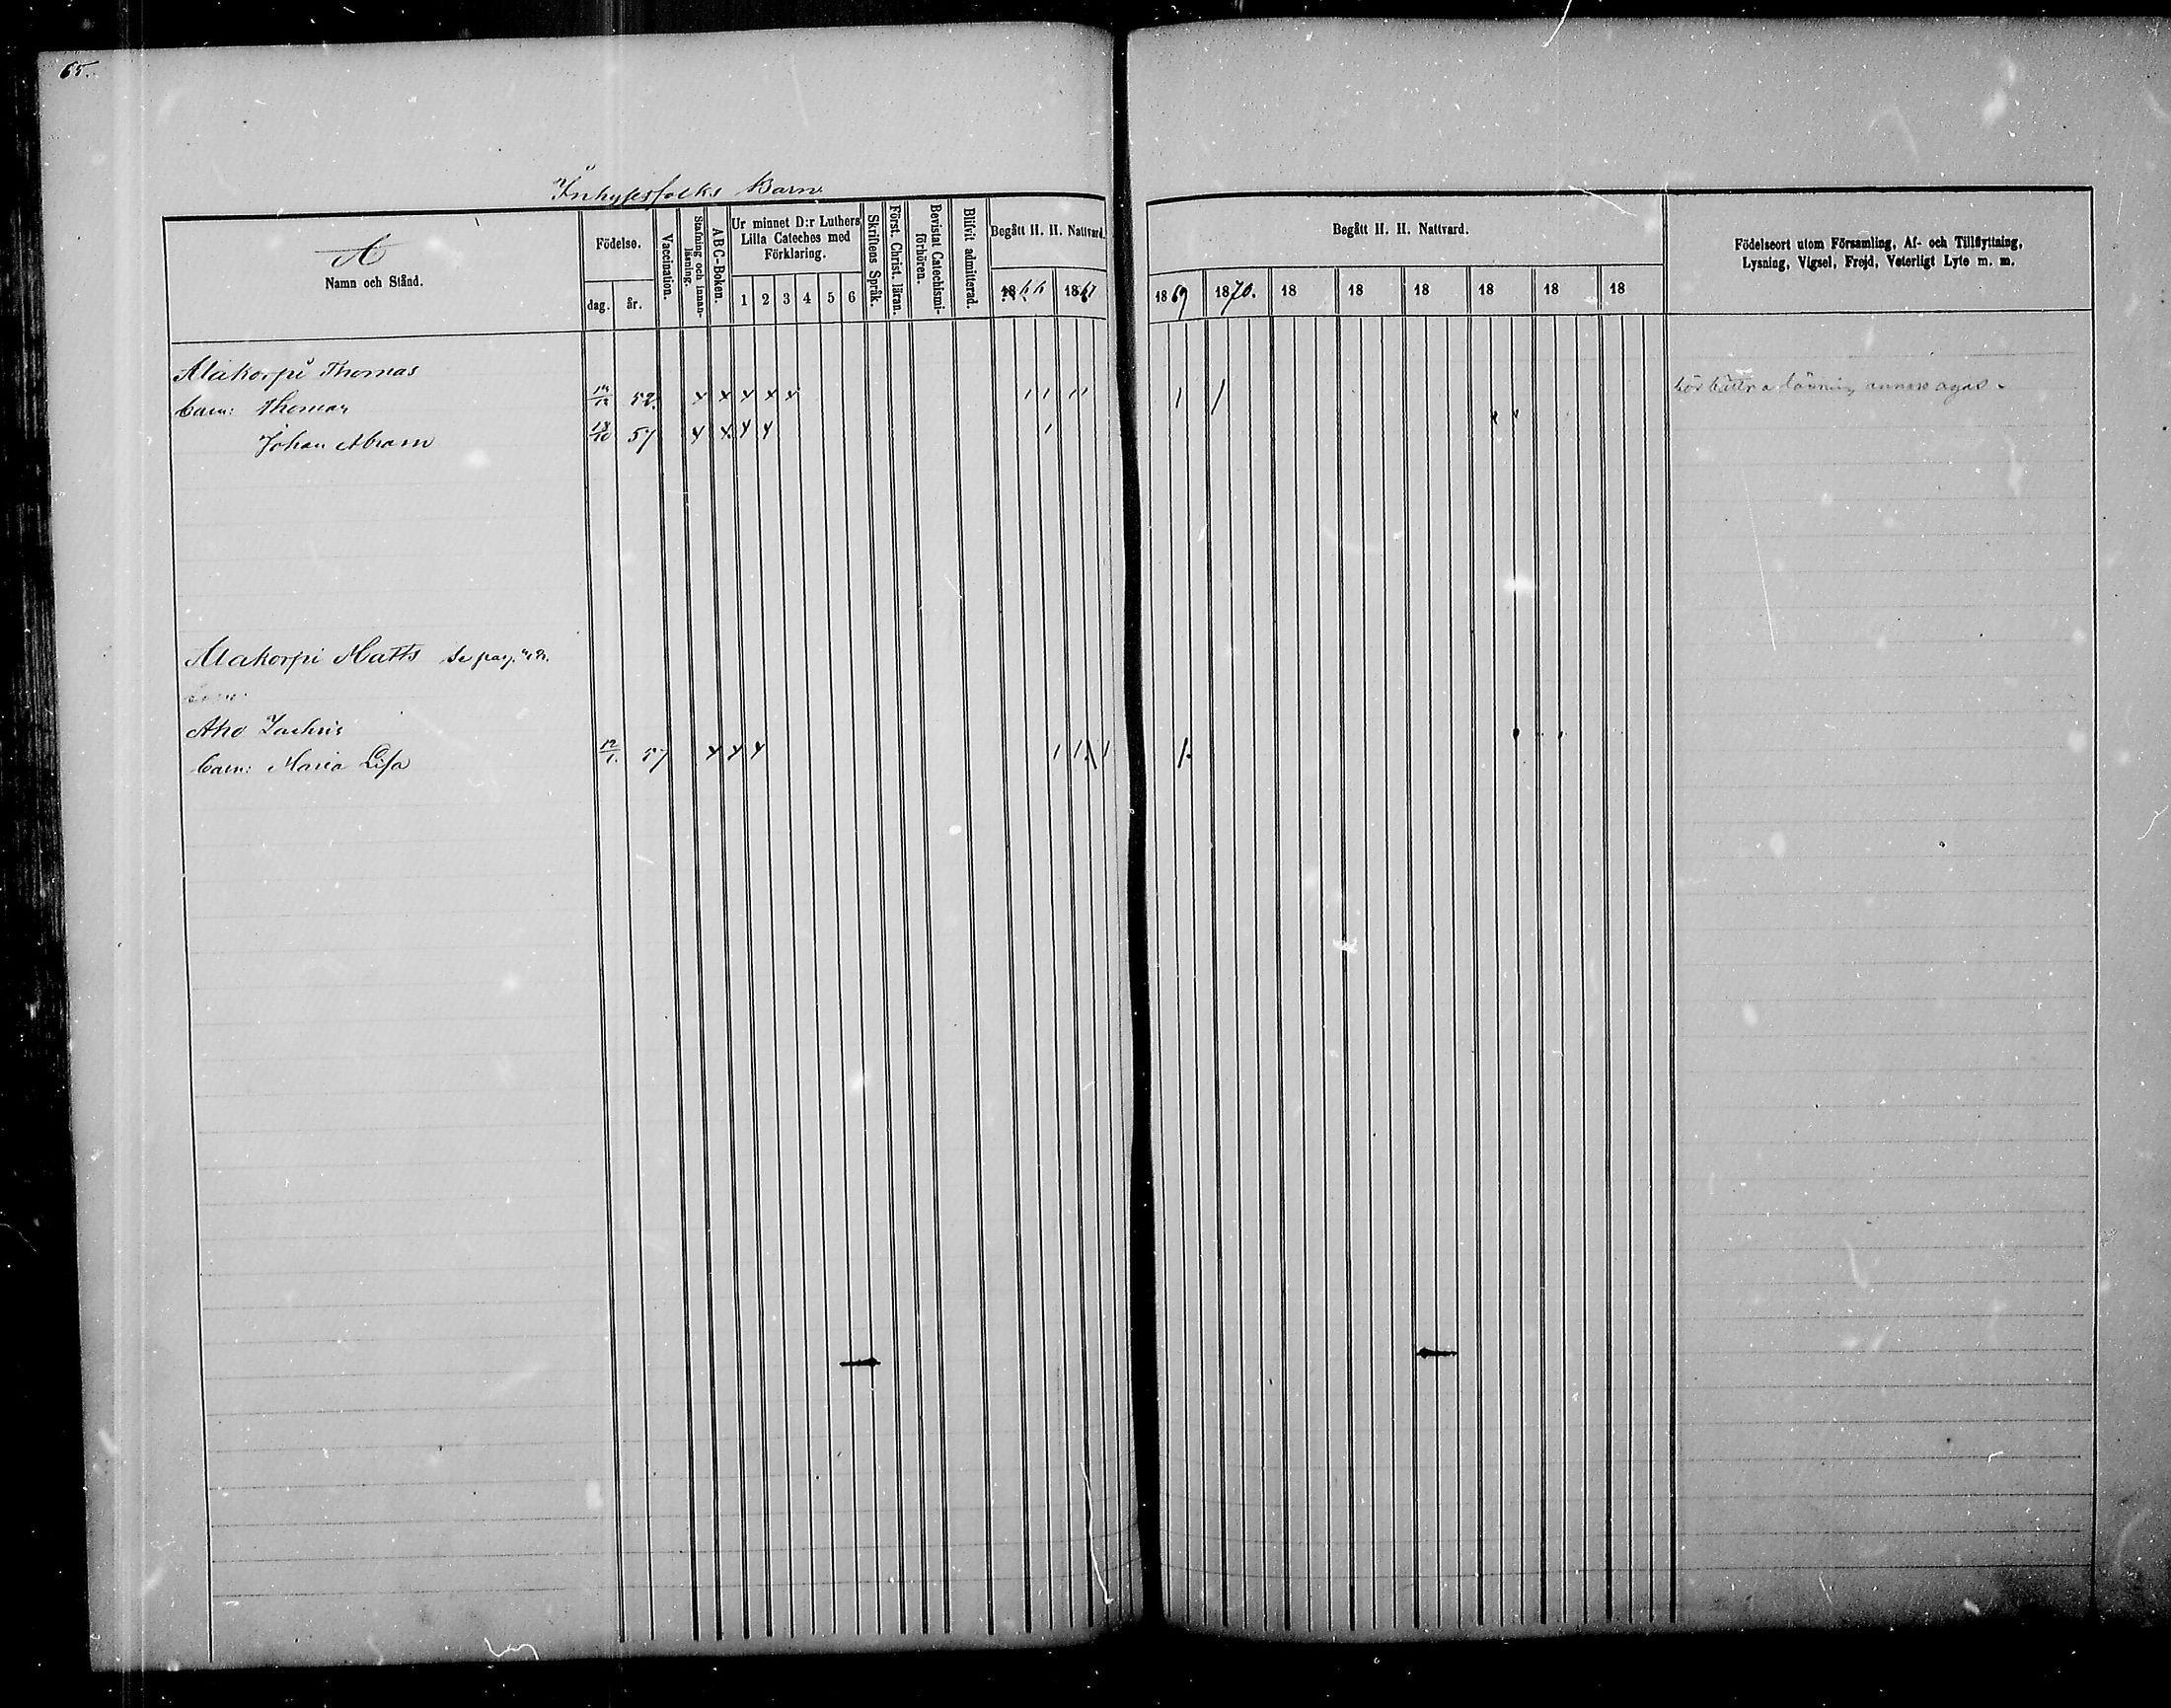 65.
Inhyses folks Barn
A
Namn och Stånd.
Födelse.
dag. år.
Vaccination.
Stafning och innan-
läsning.
ABC-Boken.
Ur minnet D:r Luthers
Lilla Cateches med
Förklaring.
1 2 3 4 5 6
Skriftens Språk.
Först. Christ. läran.
Bevistat Catechismi-
förhören.
Blifvit admitterad.
Begått H. H. Nattvard.
1866 1867
Begått H. H. Nattvard.
1869 1870. 18 18 18 18 18 18
Födelseort utom Församling, Af- och Tillflyttning,
Lysning, Vigsel, Frejd, Veterligt Lyte m. m.
Alakorpi Thomas
barn: Thomas 52.
Johan Abram 18/10 57
Alakorpi Matts se pag.
Aho Zachris
barn: Maria Lisa 12/1. 57